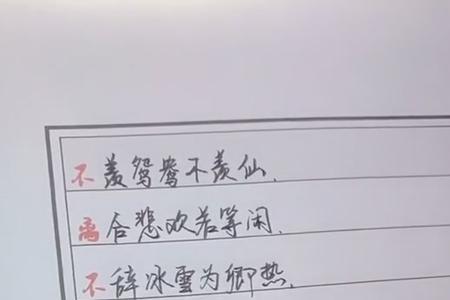 不羡鸳鸯不羡仙.
离合悲欢若等闲.
不辞冰雪为卿热.